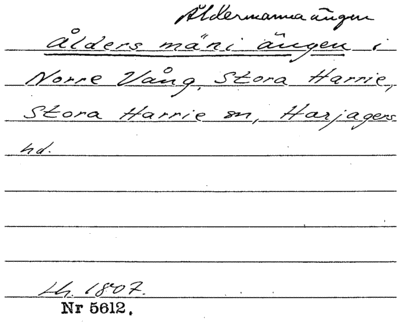 Åldermannaängen
Ålders mäni ängen i
Norre Vång, Stora Harrie,
Stora Harrie sn, Harjagers
hd.
Lh. 1807.
Nr 5612.